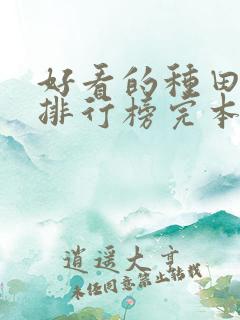 好看的種田
排行榜完本
逍遥大亨
未经同意禁止转载